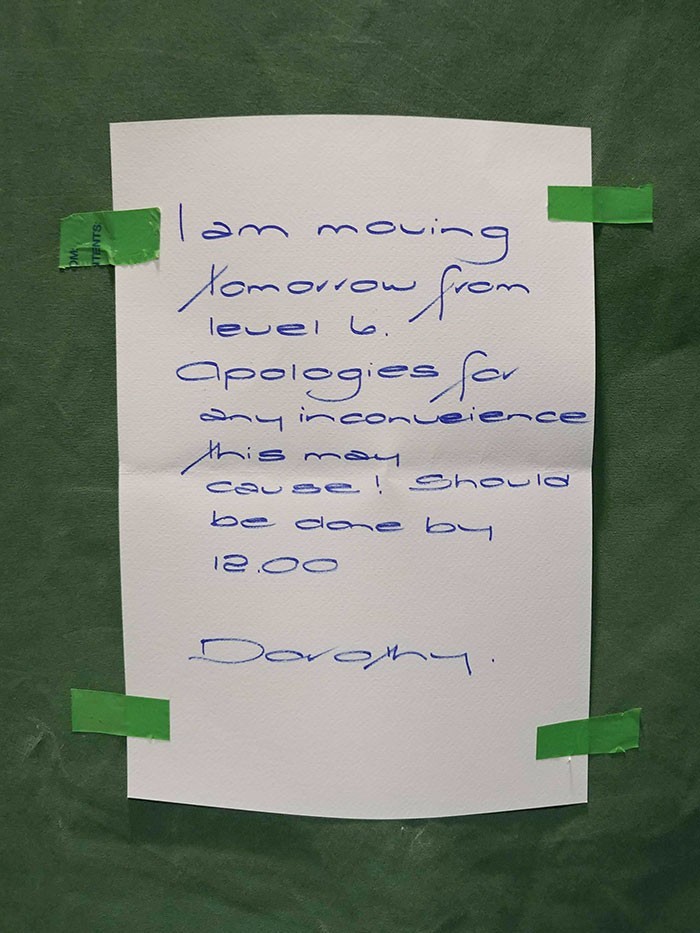 I am moving
tomorrow from
level 6.
Apologies for
any inconveience
this may
cause! Should
be done by
12.00
Dorothy.
TENTS